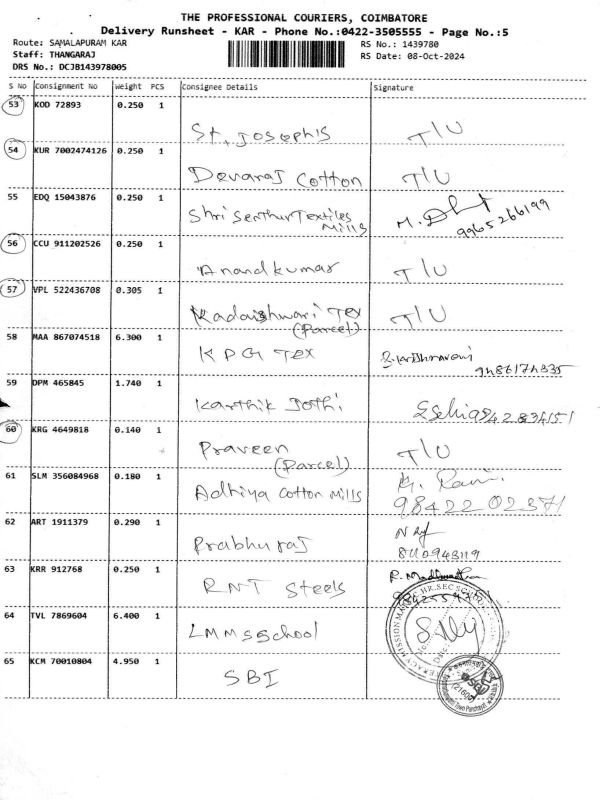 THE PROFESSIONAL COURIERS, COIMBATORE
Delivery Runsheet - KAR - Phone No.:0422-3505555 - Page No.:5
Route: SAMALAPURAM KAR
Staff: THANGARAJ
DRS No.: DCJB143978005
RS No.: 1439780
RS Date: 08-Oct-2024
S No Consignment No Weight PCS Consignee Details Signature
53 KOD 72893 0.250 1
St. Joseph's T/U
54 KUR 7002474126 0.250 1
Devaraj Cotton T/U
55 EDQ 15043876 0.250 1
Shri Senthur Textiles
Mills
9965266199
56 CCU 911202526 0.250 1
Anandkumar T/U
57 VPL 522436708 0.305 1
Kadaishwari Tex T/U
(Parcel)
58 MAA 867074518 6.300 1
KPG Tex
59 DPM 465845 1.740 1
Karthik Jothi
60 KRG 4649818 0.140 1
Praveen T/U
(Parcel)
61 SLM 356084968 0.180 1
Adhiya Cotton Mills
98422 02371
62 ART 1911379 0.290 1
Prabhu raj
63 KRR 912768 0.250 1
RNT Steels
64 TVL 7869604 6.400 1
LMMS School
65 KCM 70010804 4.950 1
SBI